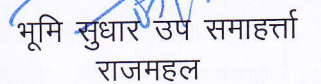 भूमि सुधार उप समाहर्त्ता
राजमहल